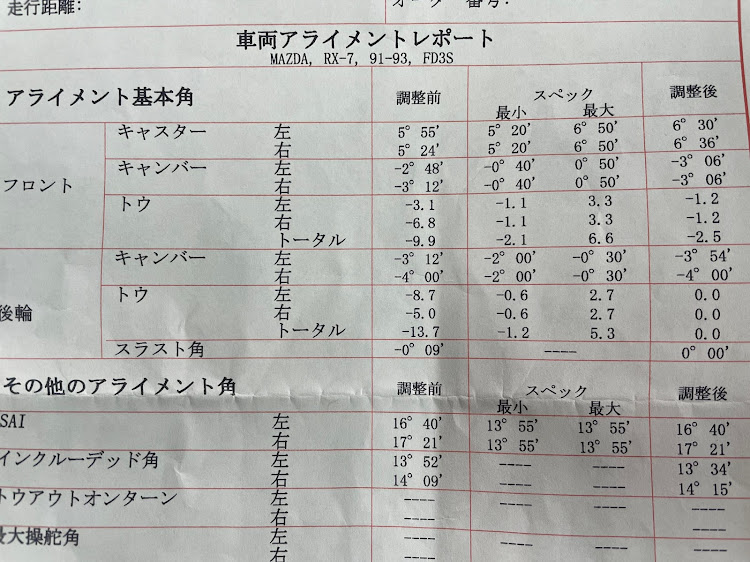 走行距離:
オーダー番号:
車両アライメントレポート
MAZDA, RX-7, 91-93, FD3S
アライメント基本角 調整前 スペック 調整後
最小 最大
フロント キャスター 左 5° 55' 5° 20' 6° 50' 6° 30'
右 5° 24' 5° 20' 6° 50' 6° 36'
キャンバー 左 -2° 48' -0° 40' 0° 50' -3° 06'
右 -3° 12' -0° 40' 0° 50' -3° 06'
トウ 左 -3.1 -1.1 3.3 -1.2
右 -6.8 -1.1 3.3 -1.2
トータル -9.9 -2.1 6.6 -2.5
後輪 キャンバー 左 -3° 12' -2° 00' -0° 30' -3° 54'
右 -4° 00' -2° 00' -0° 30' -4° 00'
トウ 左 -8.7 -0.6 2.7 0.0
右 -5.0 -0.6 2.7 0.0
トータル -13.7 -1.2 5.3 0.0
スラスト角 -0° 09' ---- 0° 00'
その他のアライメント角 調整前 スペック 調整後
最小 最大
SAI 左 16° 40' 13° 55' 13° 55' 16° 40'
右 17° 21' 13° 55' 13° 55' 17° 21'
インクルーデッド角 左 13° 52' ---- ---- 13° 34'
右 14° 09' ---- ---- 14° 15'
トウアウトオンターン 左 ---- ---- ---- ----
右 ---- ---- ---- ----
最大操舵角 左 ---- ---- ---- ----
右 ----